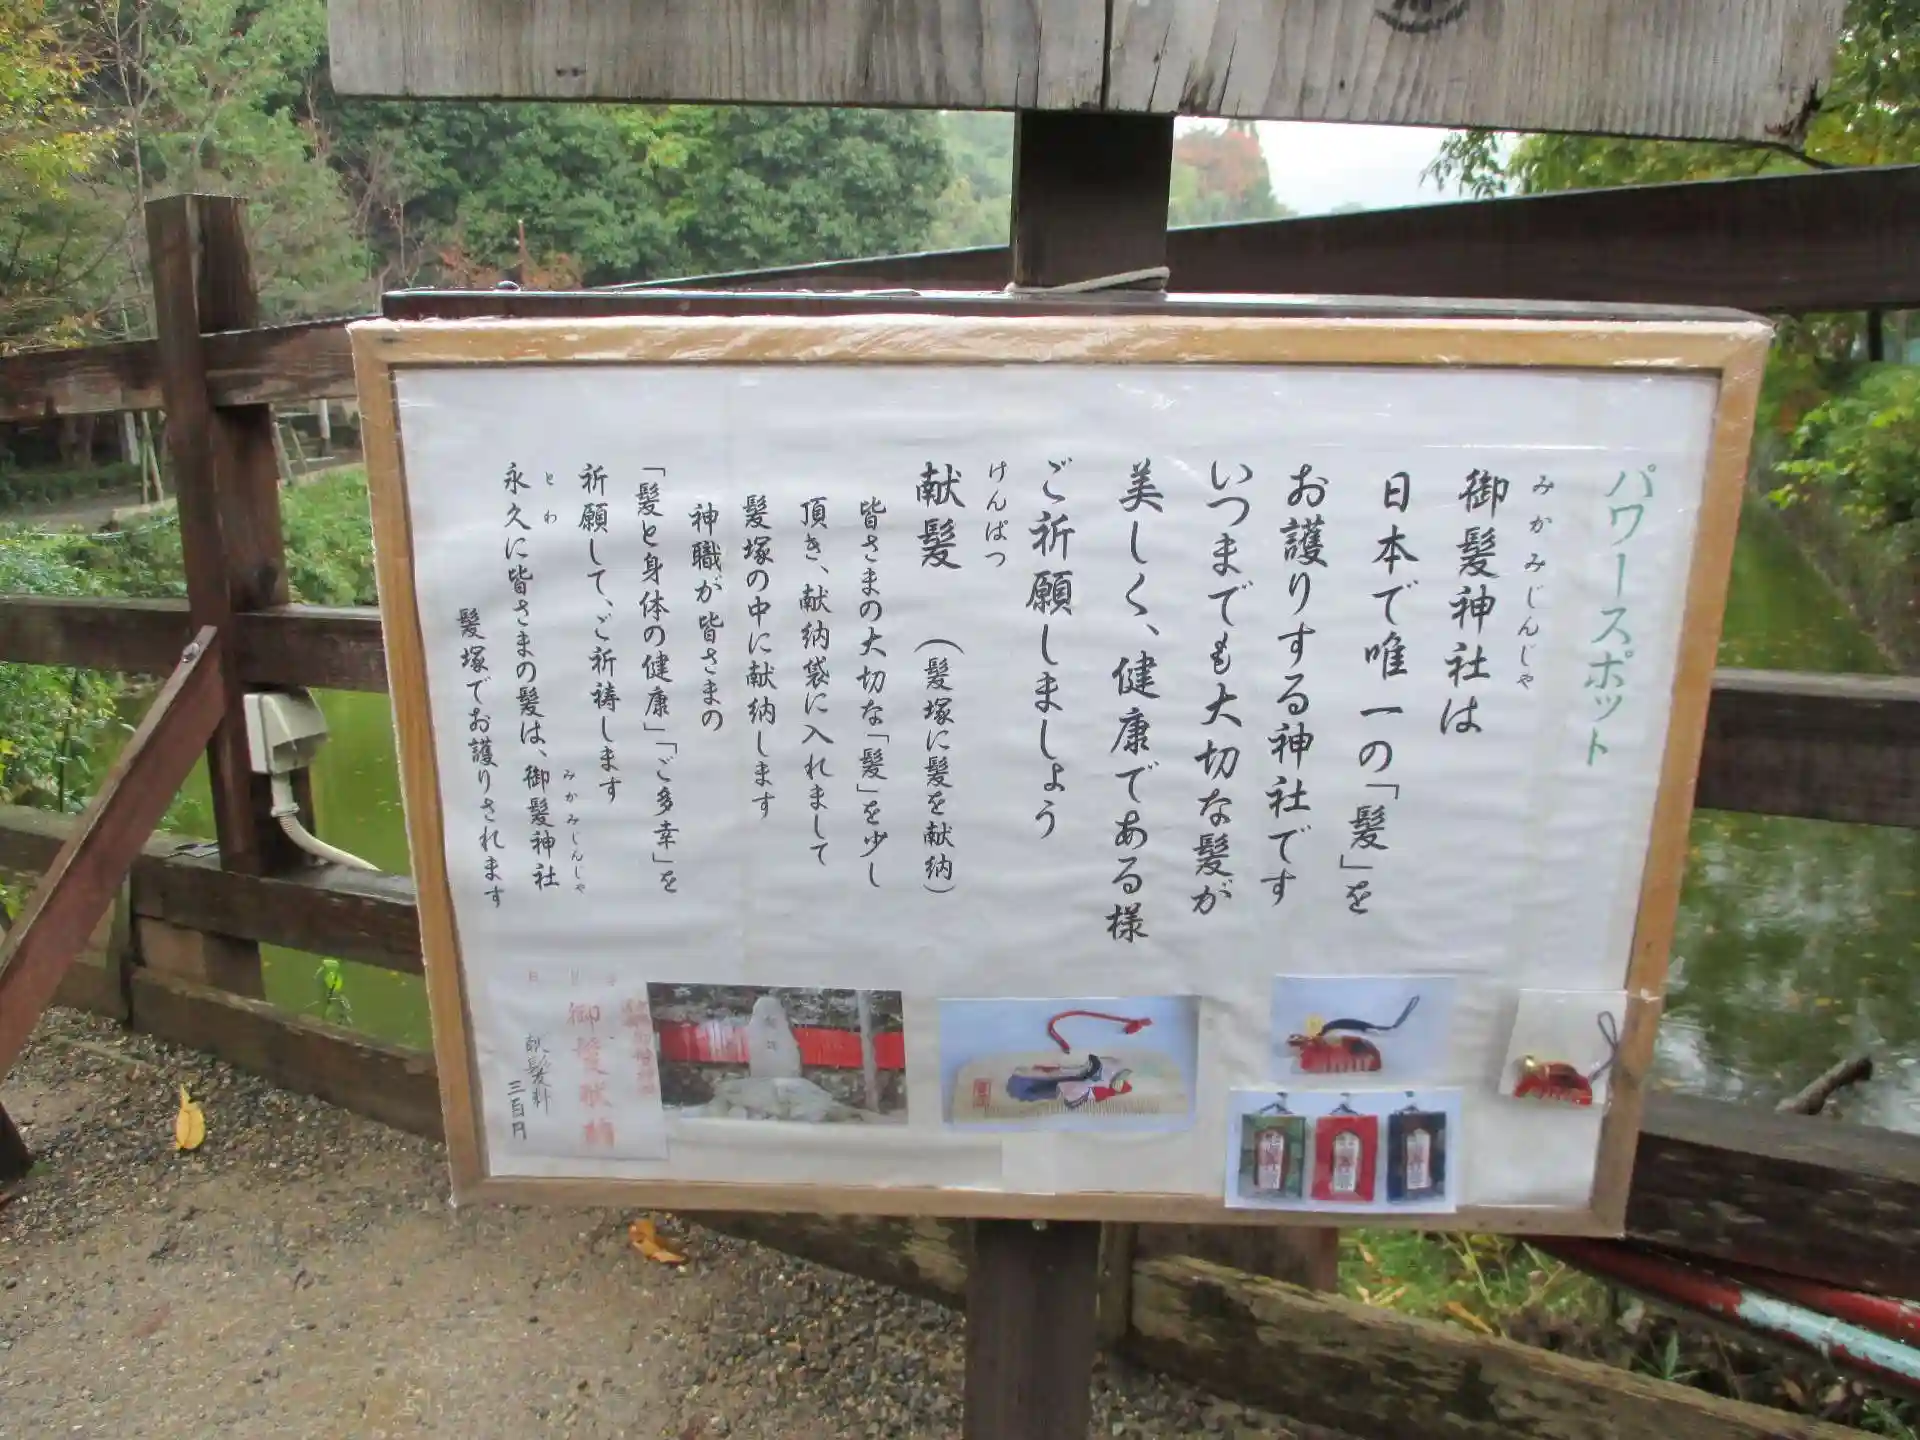 パワースポット
みかみじんじゃ
御髪神社は
日本で唯一の「髪」を
お護りする神社です
いつまでも大切な髪が
美しく、健康である様
ご祈願しましょう
けんぱつ
献髪 (髪塚に髪を献納)
皆さまの大切な「髪」を少し
頂き、献納袋に入れまして
髪塚の中に献納します
神職が皆さまの
「髪と身体の健康」「ご多幸」を
祈願して、ご祈祷します
とわ みかみじんじゃ
永久に皆さまの髪は、御髪神社
髪塚でお護りされます
御髪献納
献髪料
三百円